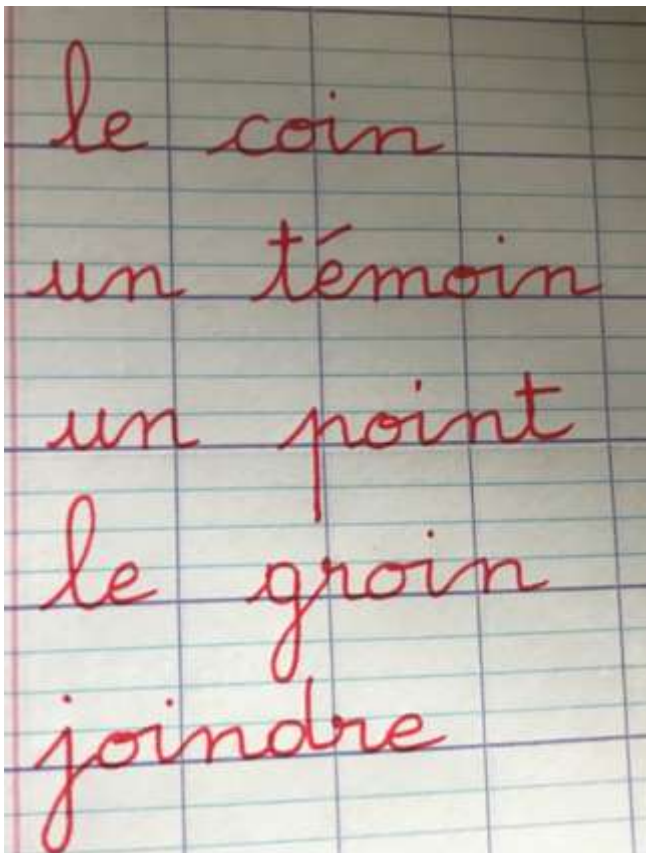 le coin
un témoin
un point
le groin
joindre